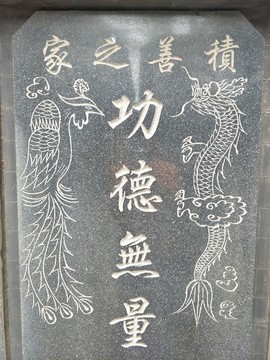 積善之家
功德無量